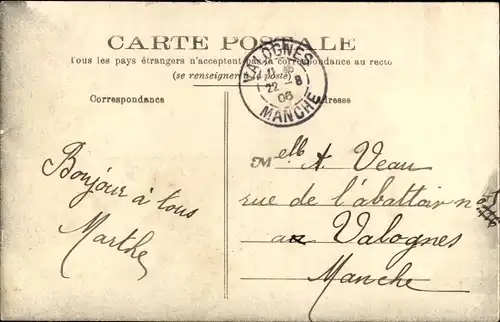 CARTE POSTALE
Tous les pays étrangers n'acceptent pas la correspondance au recto
(se renseigner à la poste)
Correspondance
Adresse
VALOGNES
22 - 8
06
MANCHE
Bonjour à tous
Marthe
Melle A. Veau
rue de l'abattoir no
Valognes
Manche